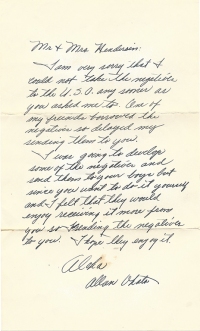 Mr & Mrs Henderson:
I am very sorry that I
could not take the negatives
to the U.S.O. any sooner as
you asked me to. One of
my friends borrowed the
negatives so delayed my
sending them to you.
I was going to develop
some of the negatives and
send them to your boys but
since you want to do it yourself
and I felt that they would
enjoy receiving it more from
you so sending the negatives
to you. I hope they enjoy it.
Aloha
Allan